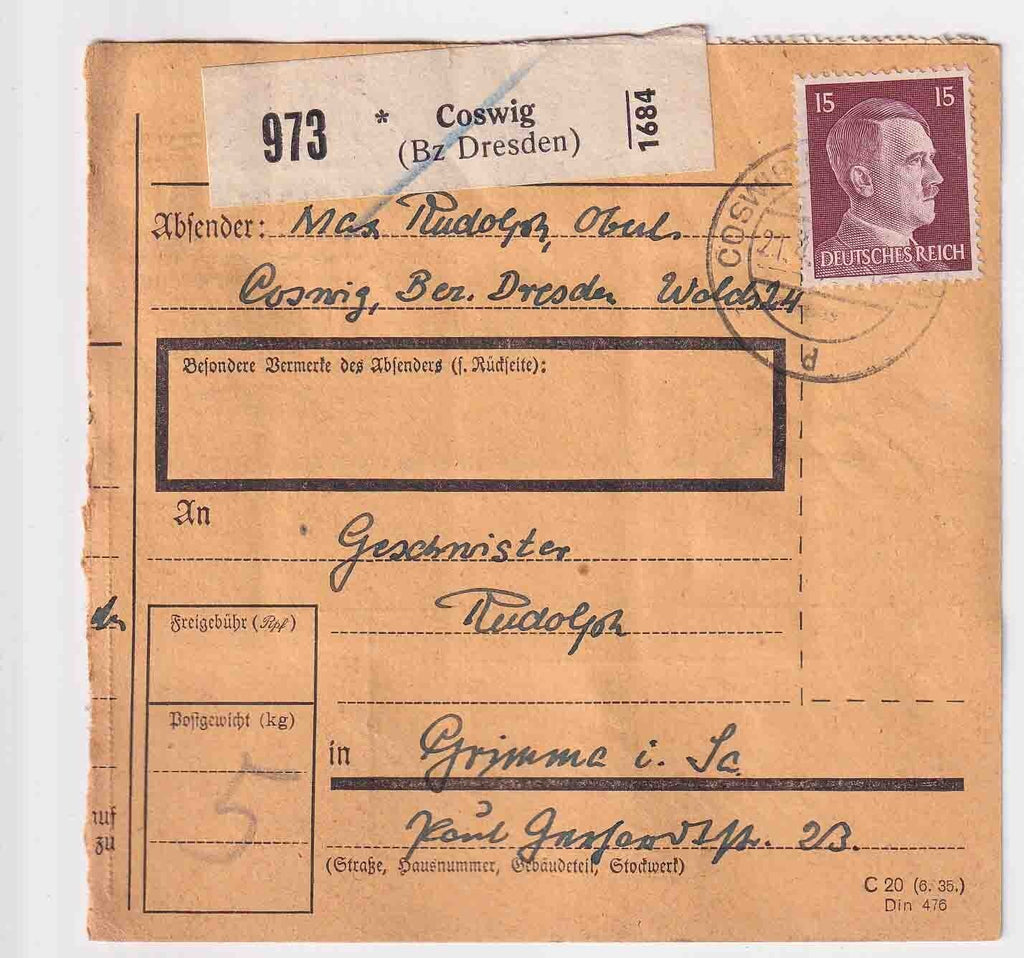 973 * Coswig
(Bz Dresden)
1684
15 15
DEUTSCHES REICH
COSWIG
21.
Absender: Max Rudolph, Oberl.
Coswig, Bez. Dresden Waldstr. 24
Besondere Vermerke des Absenders (s. Rückseite):
An
Geschwister
Rudolph
Freigebühr (Rpf)
Postgewicht (kg)
5
in Grimma i. Sa.
Paul Gerhardtstr. 2B.
(Straße, Hausnummer, Gebäudeteil, Stockwerk)
auf
zu
C 20 (6. 35.)
Din 476